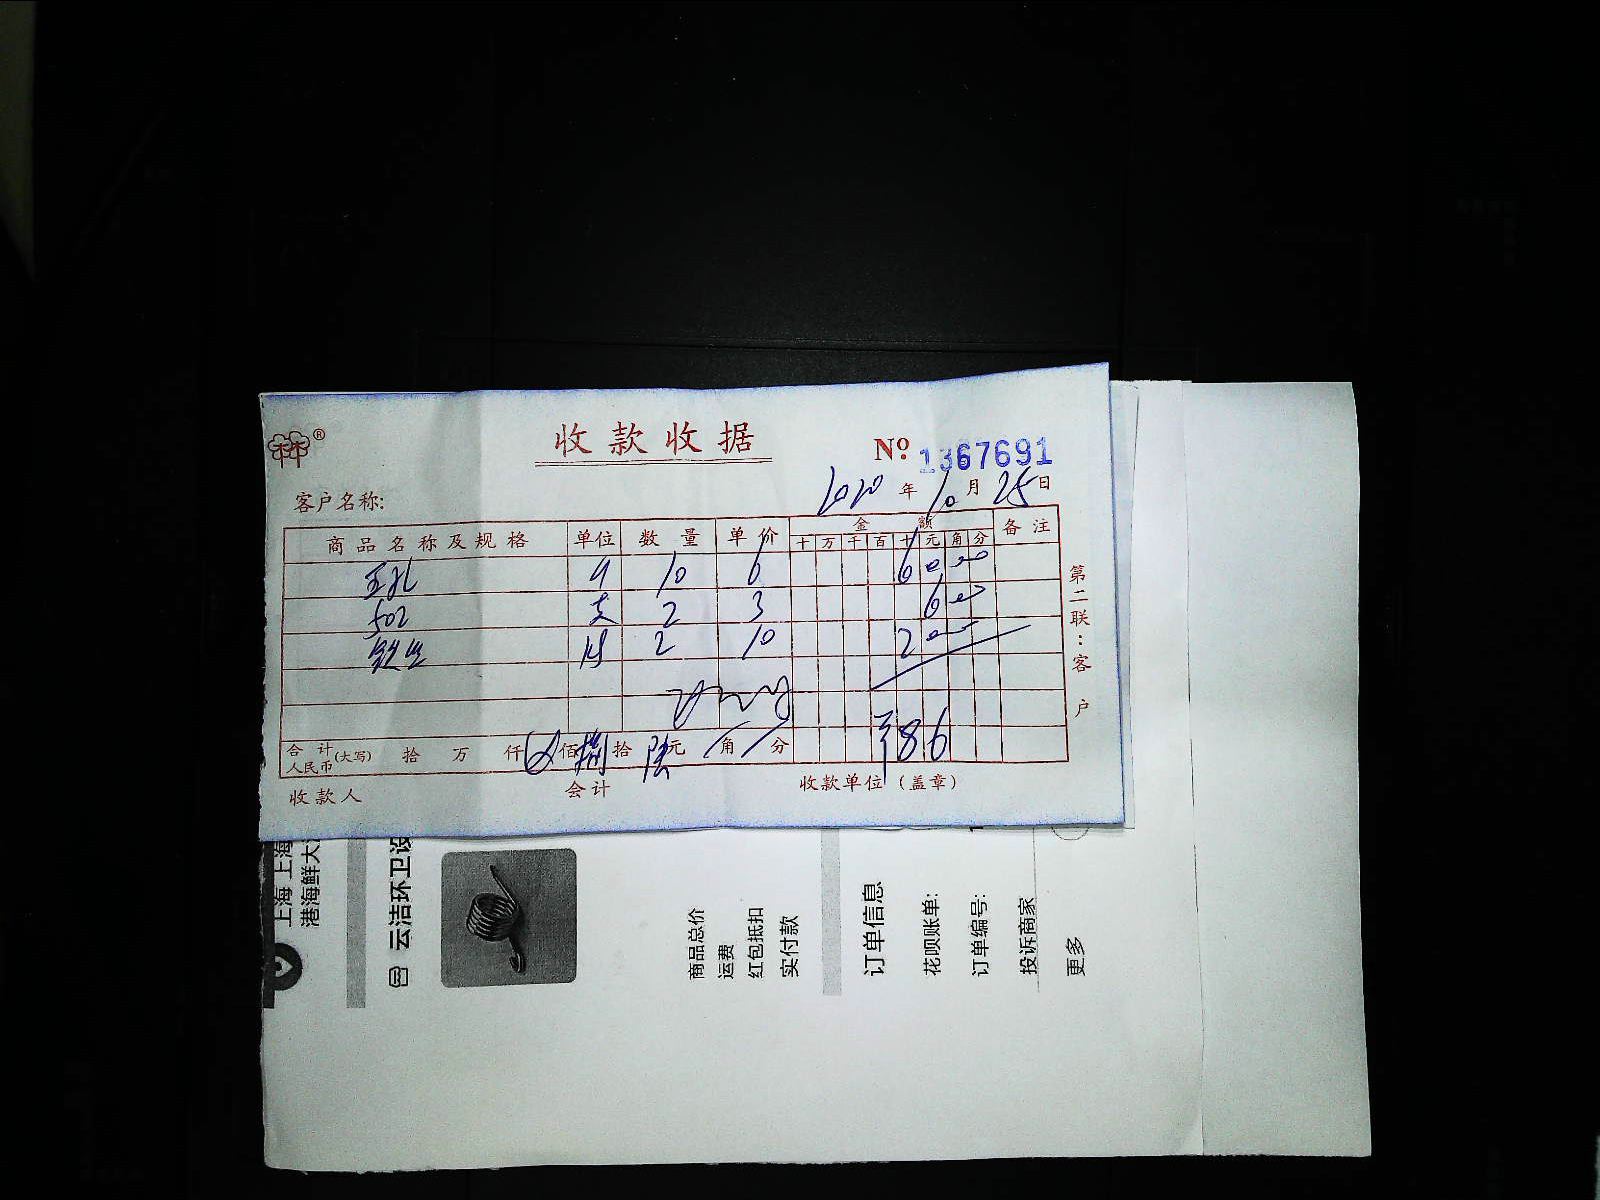 林®
收款收据
№ 1367691
2020 年 10 月 25 日
客户名称:
商品名称及规格 单位 数量 单价 金额 备注
十 万 千 百 十 元 角 分
五孔 个 10 6 60 00
502 支 2 3 6 00
2 10 20 00
合计人民币(大写) 拾 万 仟 ⊗ 佰 捌 拾 陆 元 角 分 ¥86
收款人 会计 收款单位(盖章)
第二联:客户
上海 上海
港海鲜大
云洁环卫设
商品总价
运费
红包抵扣
实付款
订单信息
花呗账单:
订单编号:
投诉商家
更多